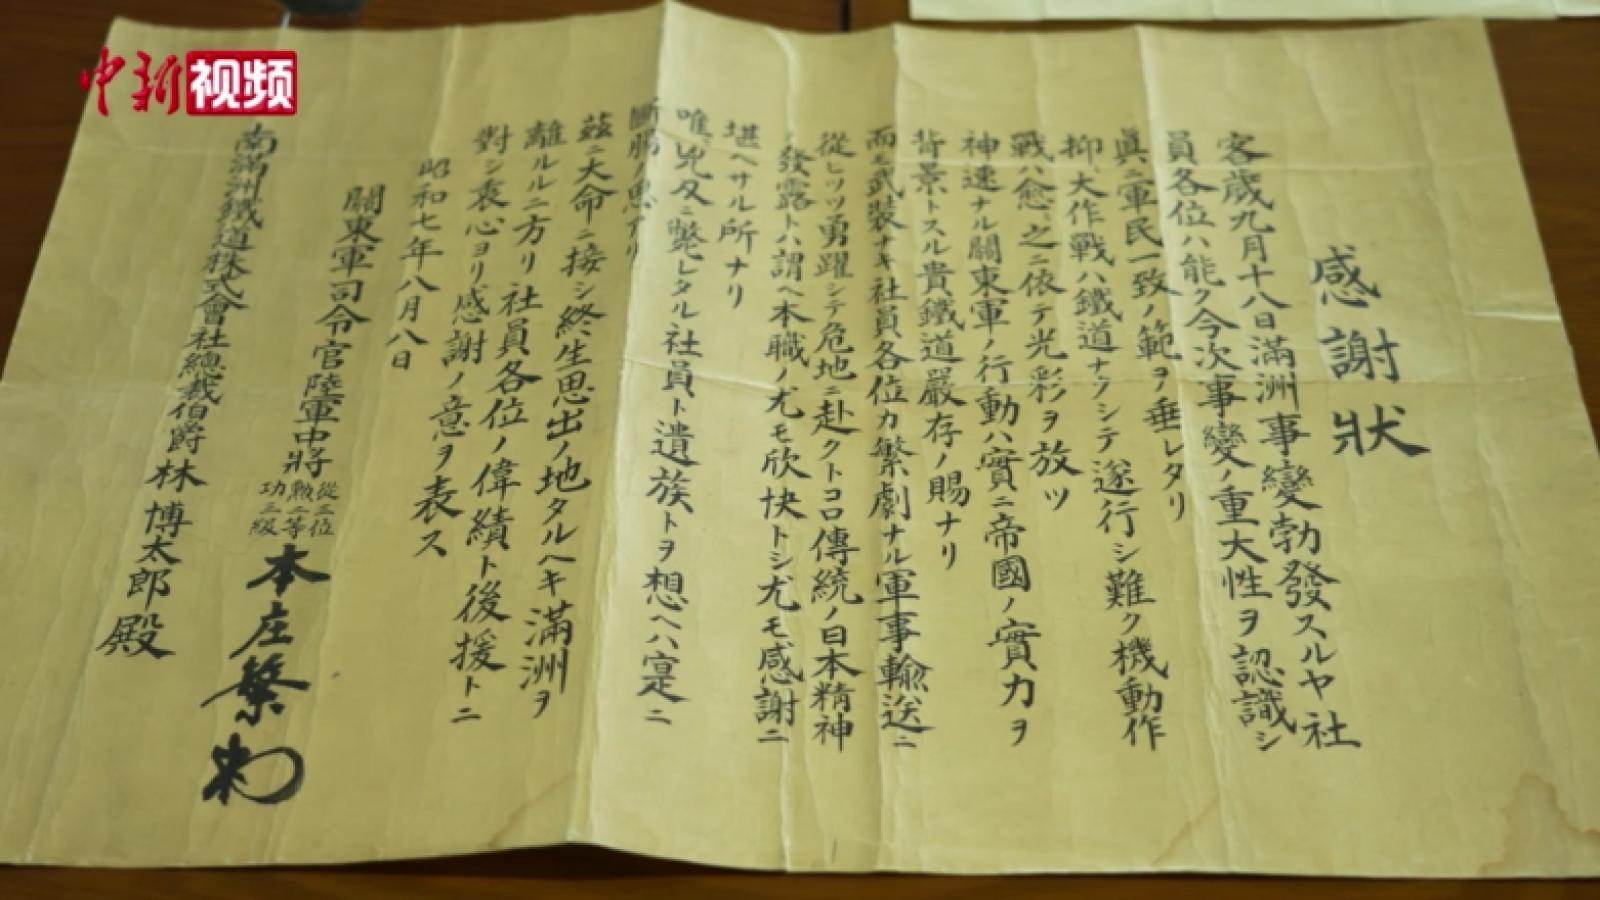 中新视频
感謝狀
客歲九月十八日滿洲事變勃發スルヤ社
員各位ハ能ク今次事變ノ重大性ヲ認識シ
眞ニ軍民一致ノ範ヲ垂レタリ
抑〻大作戰ハ鐵道ナクシテ遂行シ難ク機動作
戰ハ愈〻之ニ依テ光彩ヲ放ツ
神速ナル關東軍ノ行動ハ實ニ帝國ノ實力ヲ
背景トスル貴鐵道嚴存ノ賜ナリ
而モ武裝ナキ社員各位カ繁劇ナル軍事輸送ニ
從ヒツツ勇躍シテ危地ニ赴クトコロ傳統ノ日本精神
ノ發露トハ謂ヘ本職ノ尤モ欣快トシ尤モ感謝ニ
堪ヘサル所ナリ
唯〻兇刄ニ斃レタル社員ト遺族トヲ想ヘハ寔ニ
斷腸ノ思アリ
茲ニ大命ニ接シ終生思出ノ地タルヘキ滿洲ヲ
離ルルニ方リ社員各位ノ偉績ト後援トニ
對シ衷心ヨリ感謝ノ意ヲ表ス
昭和七年八月八日
關東軍司令官陸軍中將
從三位
勲二等
功三級
本庄繁
南滿洲鐵道株式會社總裁伯爵林博太郎殿